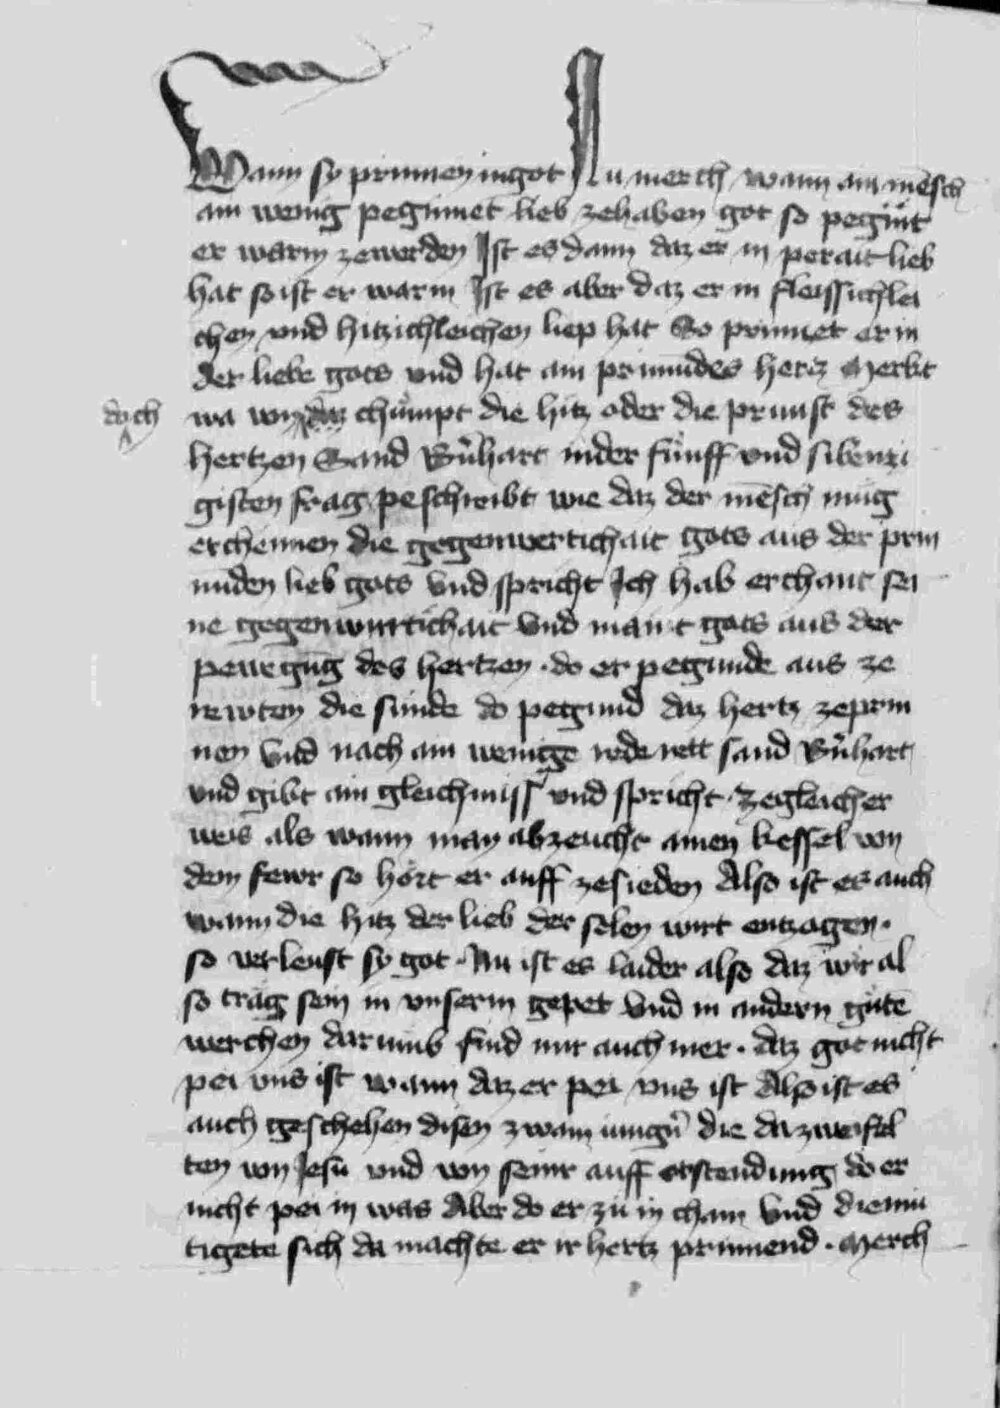 Wann sy prinnen in got Nu merch wann ain mēsch
ain wenig peginnet lieb zehaben got so pegīnt
er warm zewerden Ist es dann daz er in perait lieb
hat so ist er warm Ist es aber daz er in fleissichlei
chen vnd hitzichleichen liep hat So prinnet er in
der liebe gots vnd hat ain prinnūdes hertz Merkt
wa von doch chumpt die hitz oder die prunst des
hertzen Sand Bn̄hart in der fünff vnd sibenzi
gisten frag peschreibt wie daz der mēsch müg
erchennen die gegenwertichait gots aus der prin
nūden lieb gots vnd spricht Ich hab erchant sei
ne gegenwürtichait vnd maint gots aus der
pewegūg des hertzen . do er pegunde aus ze
rewten die sünde do pegund daz hertz zeprin
nen vnd nach ain wenige rede rett sand Bn̄hart
vnd gibt ain gleichniss vnd spricht . zegleicher
weis als wann man abzeucht ainen kessel von
dem fewr so hört er auff zesieden Also ist es auch
wann die hitz der lieb der selen wirt entzogen .
so verleust sy got . Nu ist es laider also daz wir al
so träg sein in vnserm gepet vnd in andern gūtē
werchen darumb sind mir auch mer . daz got nicht
pei vns ist wann daz er pei vns ist Also ist es
auch geschehen disen zwain iungn̄ die da zweifel
ten von Jesu vnd von seinr auff erstendung do er
nicht pei in was Aber do er zu in cham vnd diemü
tigete sich da machte er ir hertz prinnend . Merch